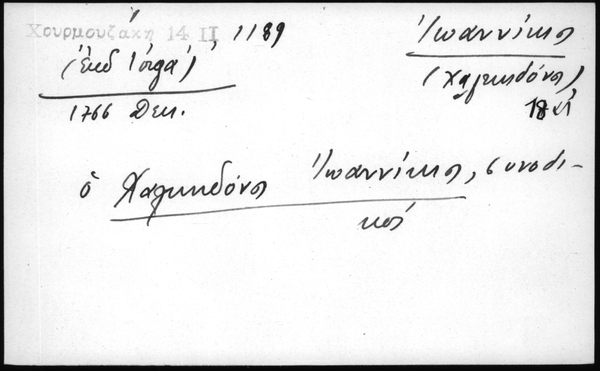 Χουρμουζάκη 14 II, 1189
(ἔκδ Ἰόργα)
1766 Δεκ.
Ἰωαννίκιος
(Χαλκηδόνος)
ὁ Χαλκηδόνος Ἰωαννίκιος, συνοδι-
κός